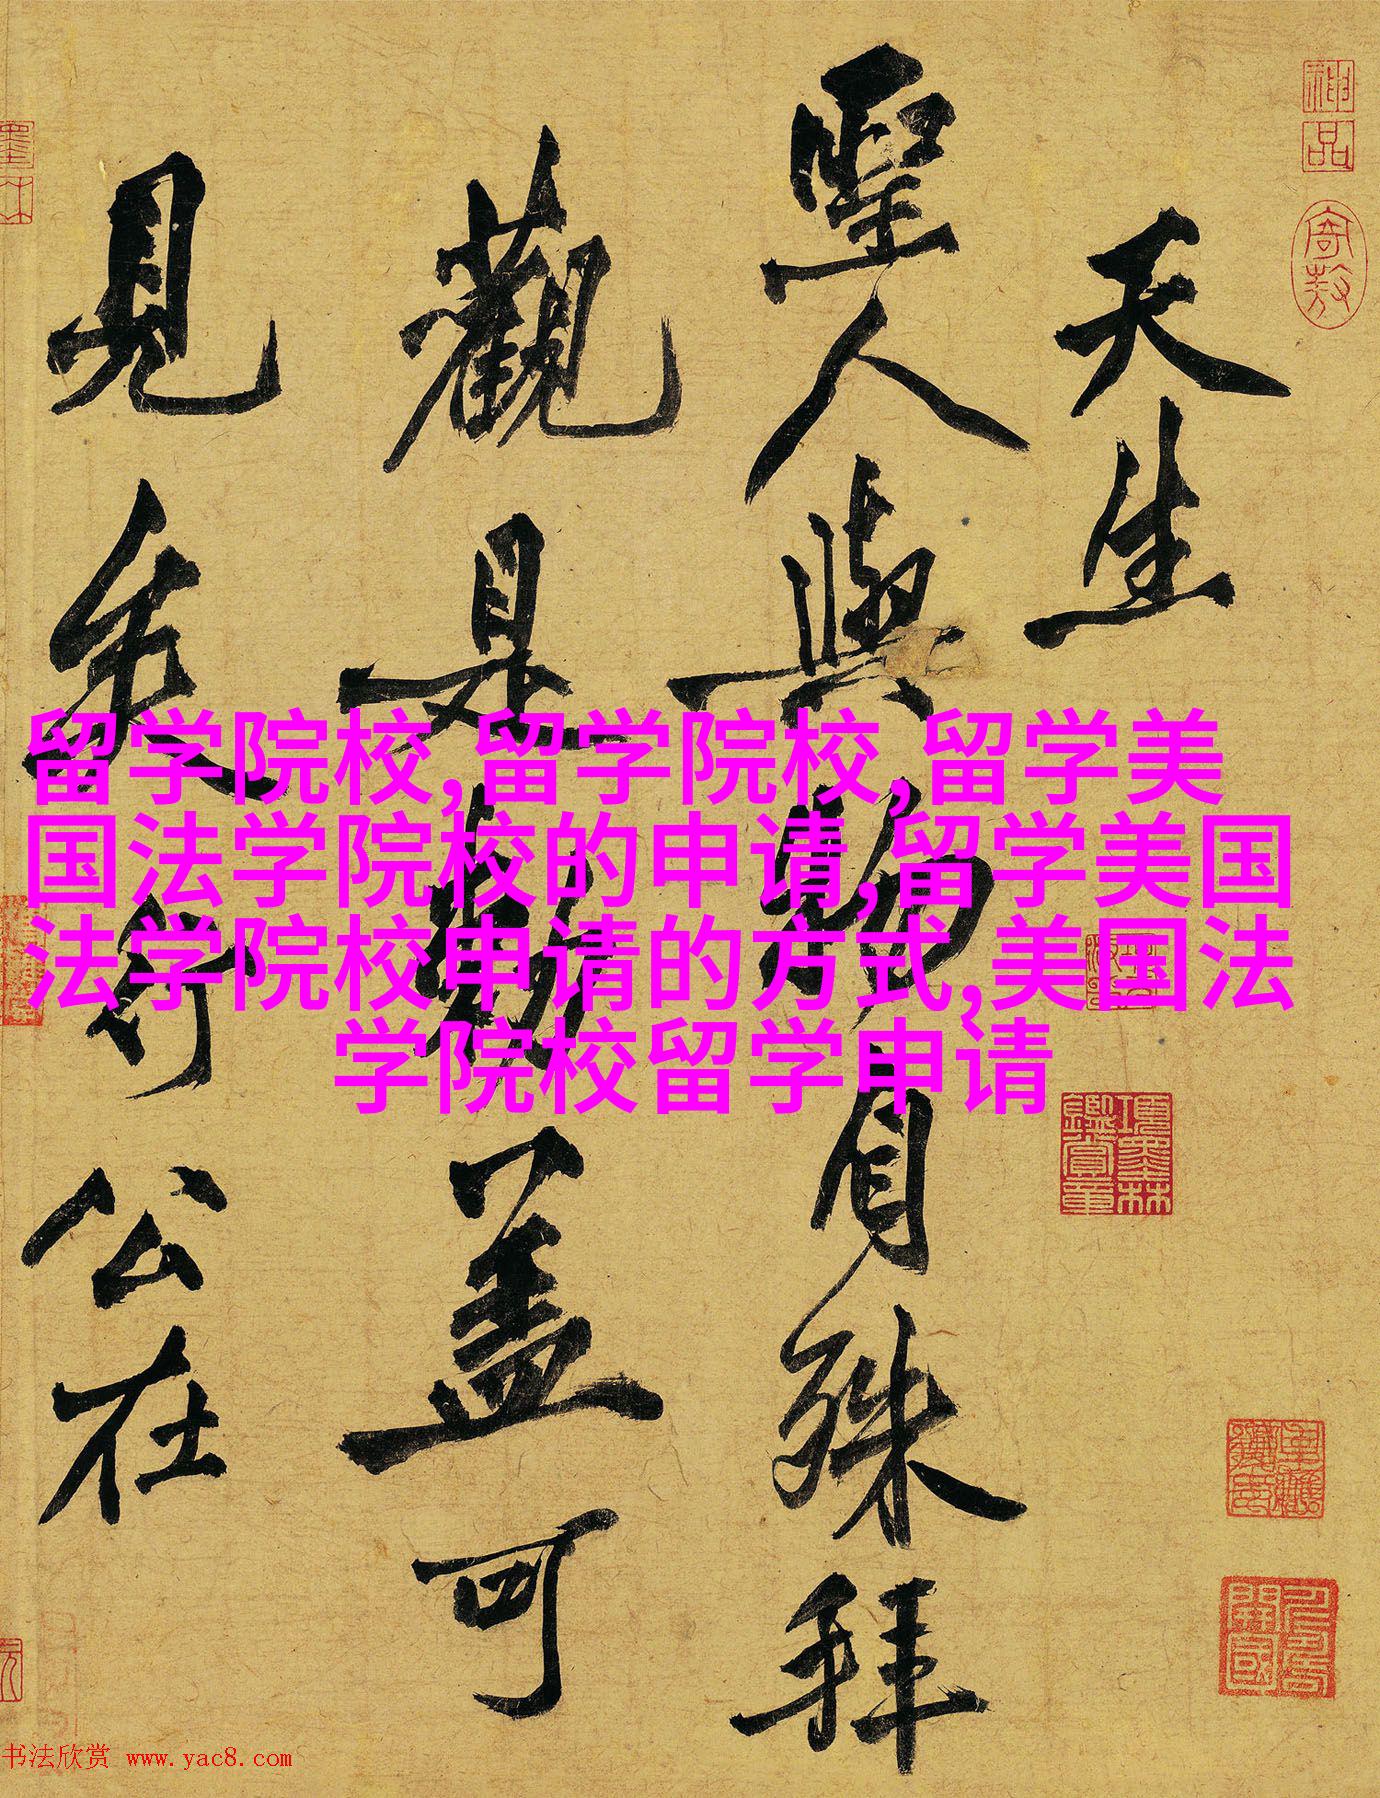 神品
天生
聖人與物自殊拜
觀是蓋可
見矣行公在
項墨林鑑賞章
留学院校,留学院校,留学美
国法学院校的申请,留学美国
法学院校申请的方式,美国法
学院校留学申请
书法欣赏 www.yac8.com